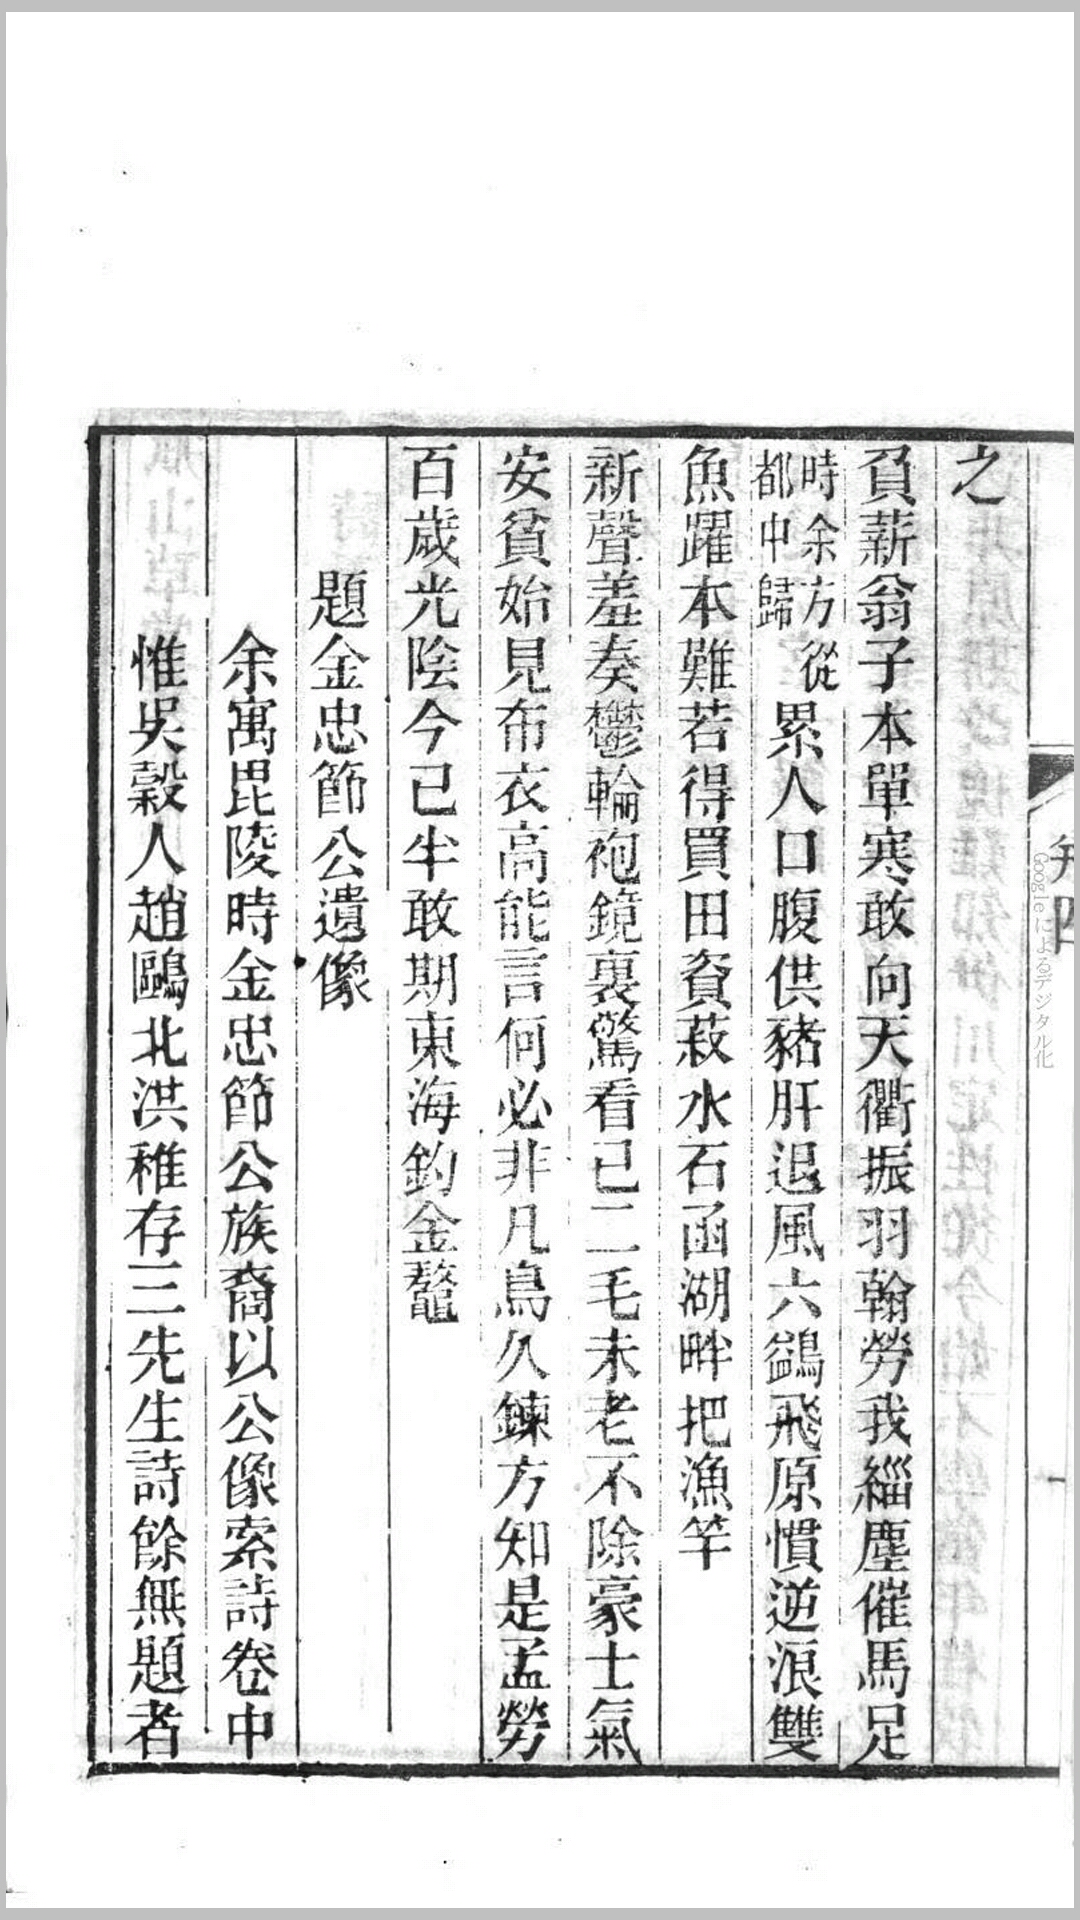 之
負薪翁子本單寒敢向天衢振羽翰勞我緇塵催馬足
時余方從都中歸累人口腹供豬肝退風六鷁飛原慣逆浪雙
魚躍本難若得買田資菽水石函湖畔把漁竿
新聲羞奏鬱輪袍鏡裏驚看已二毛未老不除豪士氣
安貧始見布衣高能言何必非凡鳥久鍊方知是孟勞
百歲光陰今已半敢期東海釣金鼇
題金忠節公遺像
余寓毘陵時金忠節公族裔以公像索詩卷中
惟吳穀人趙鷗北洪稚存三先生詩餘無題者
Googleによるデジタル化